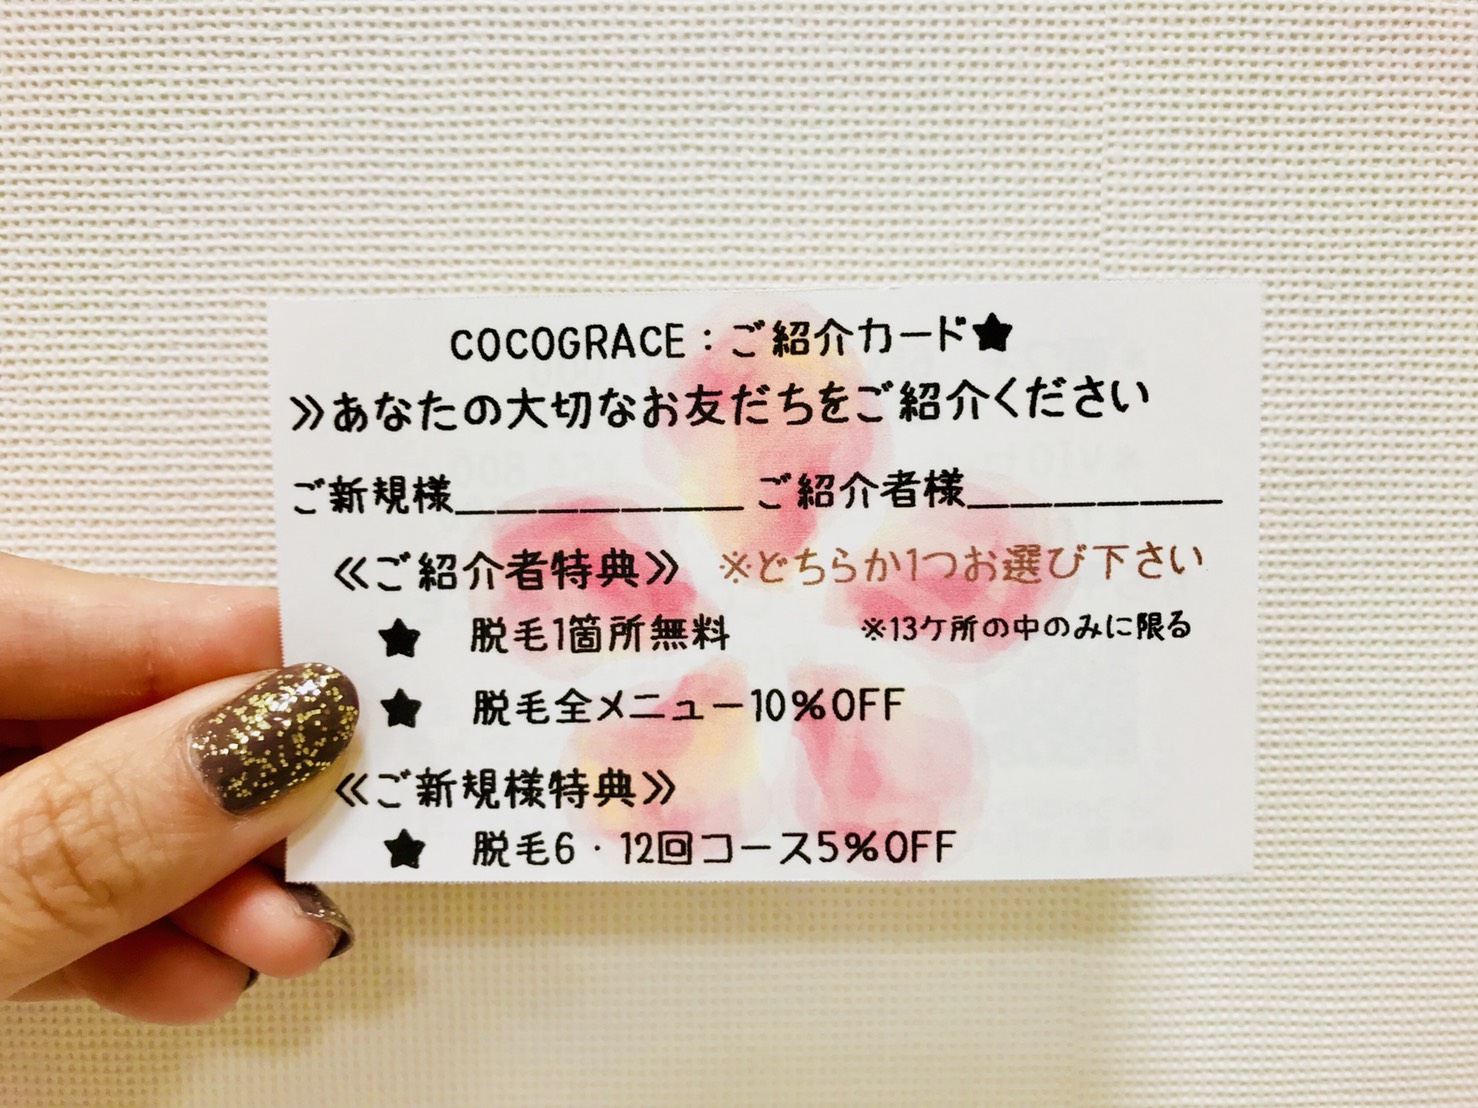 COCOGRACE：ご紹介カード★
≫あなたの大切なお友だちをご紹介ください
ご新規様＿＿＿＿＿＿＿ ご紹介者様＿＿＿＿＿＿
≪ご紹介者特典≫ ※どちらか1つお選び下さい
★ 脱毛1箇所無料 ※13ケ所の中のみに限る
★ 脱毛全メニュー10%OFF
≪ご新規様特典≫
★ 脱毛6・12回コース5%OFF